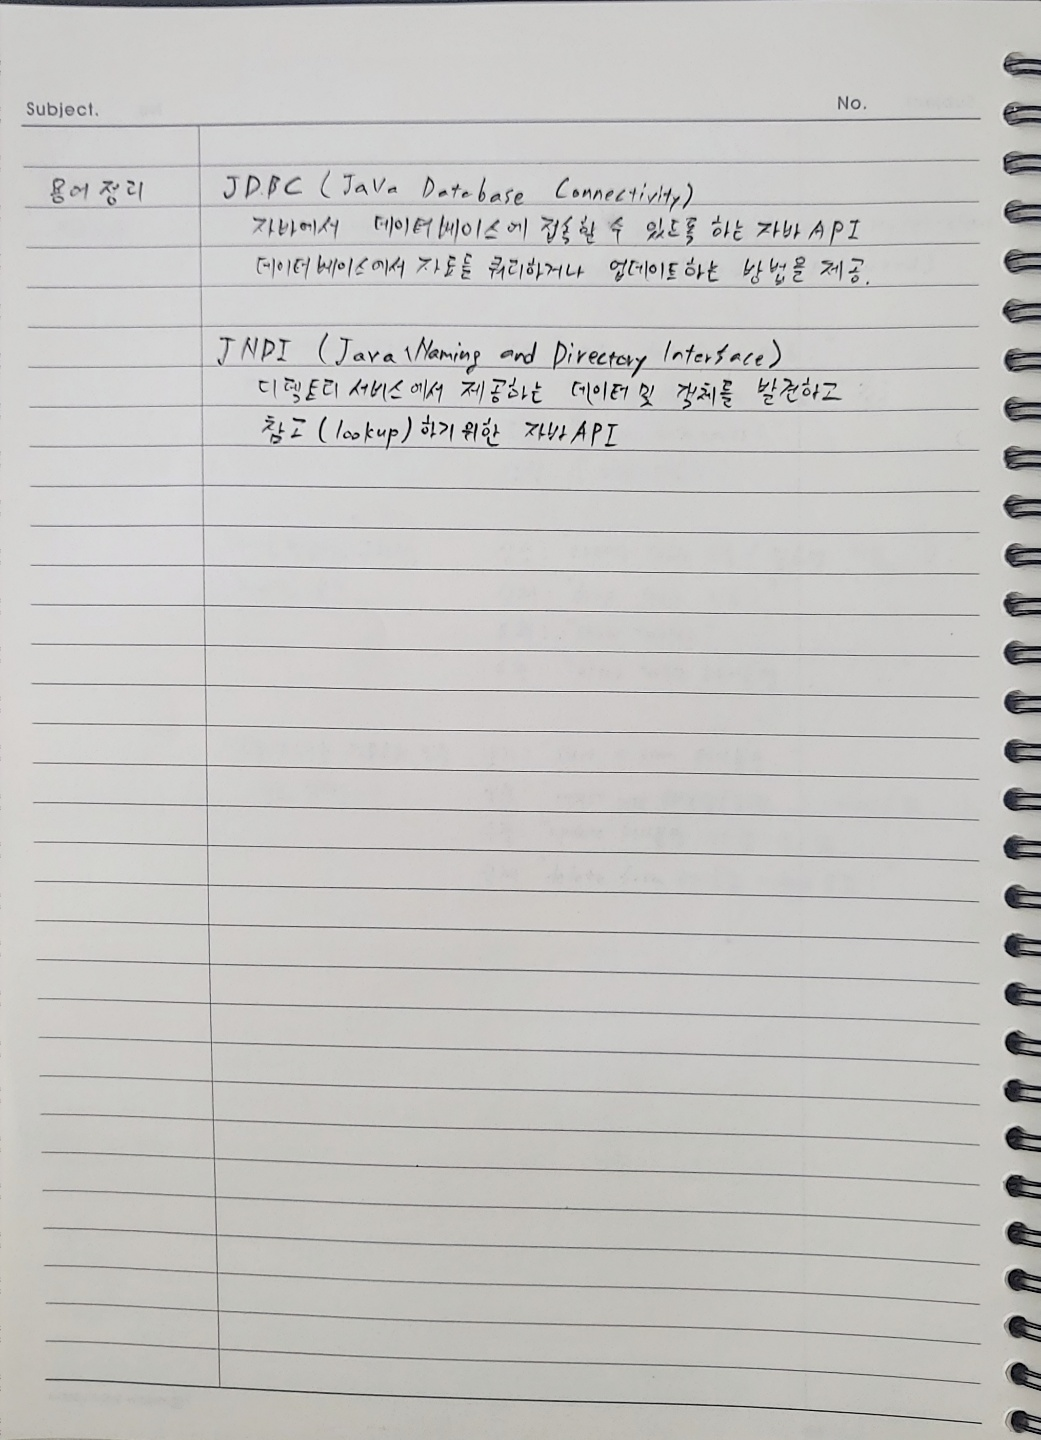 Subject.
No.
용어 정리
JDBC (Java Database Connectivity)
자바에서 데이터베이스에 접속할 수 있도록 하는 자바 API
데이터베이스에서 자료를 쿼리하거나 업데이트하는 방법을 제공.
JNDI (Java Naming and Directory Interface)
디렉토리 서비스에서 제공하는 데이터 및 객체를 발견하고
참고 (lookup) 하기 위한 자바 API